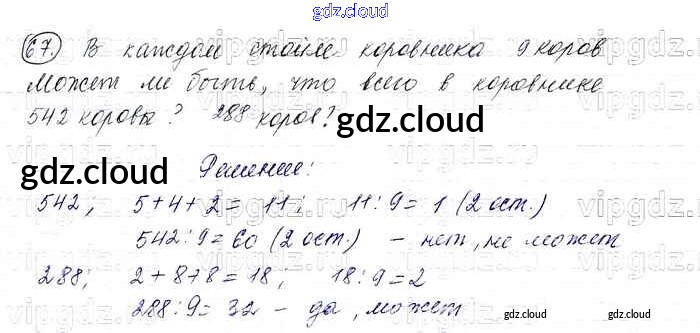 gdz.cloud
67. В каждом стойле коровника 9 коров
Может ли быть, что всего в коровнике
542 коровы? 288 коров?
gdz.cloud
gdz.cloud
Решение:
542; 5+4+2=11; 11:9=1 (2 ост.)
542:9=60 (2 ост.) – нет, не может
288; 2+8+8=18; 18:9=2
288:9=32 – да, может
gdz.cloud gdz.cloud